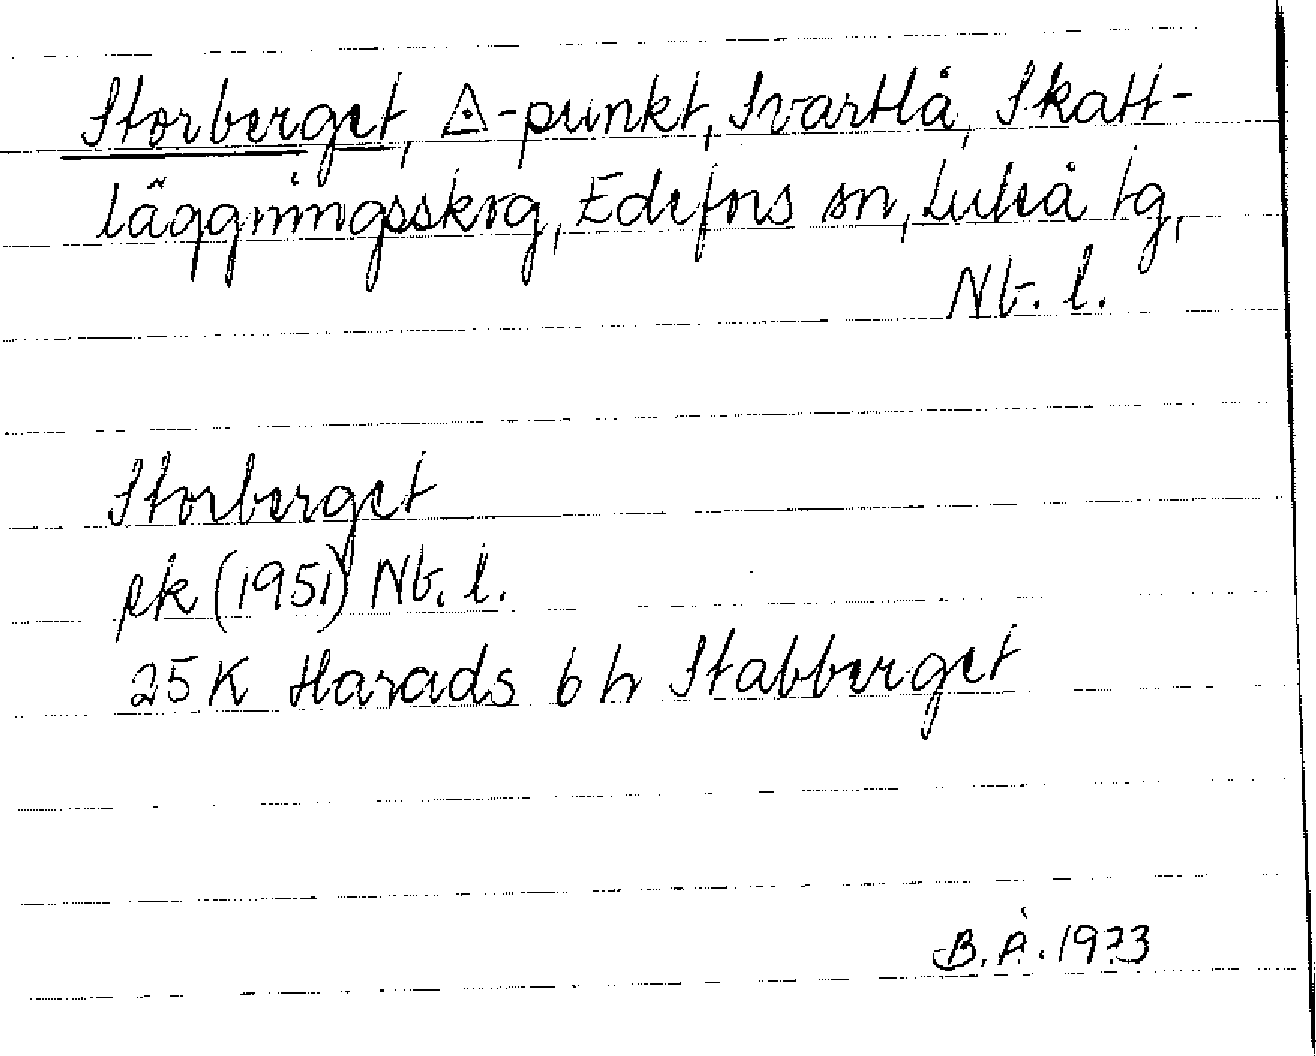 Storberget, △-punkt, Svartlå, Skatt-
läggningsskog, Edefors sn, Luleå tg,
Nb. l.
Storberget
rk (1951) Nb. l.
25 K Harads 6 h Stabberget
B.Å. 1973